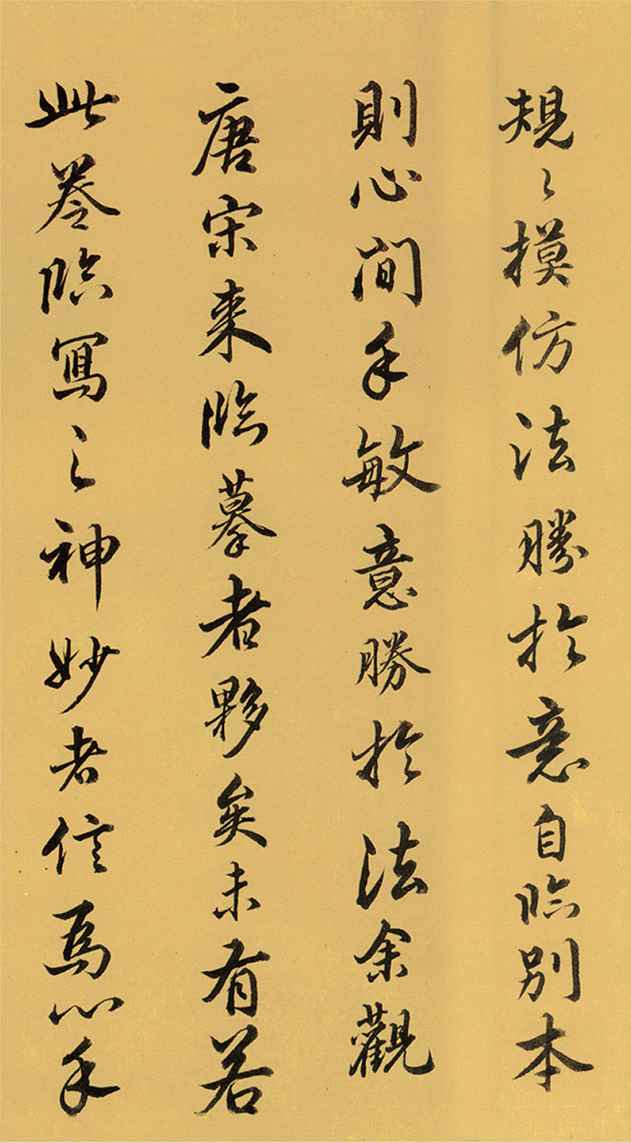 規々摸仿法勝於意自臨別本
則心閒手敏意勝於法余觀
唐宋來臨摹者夥矣未有若
此卷臨寫之神妙者信焉心手